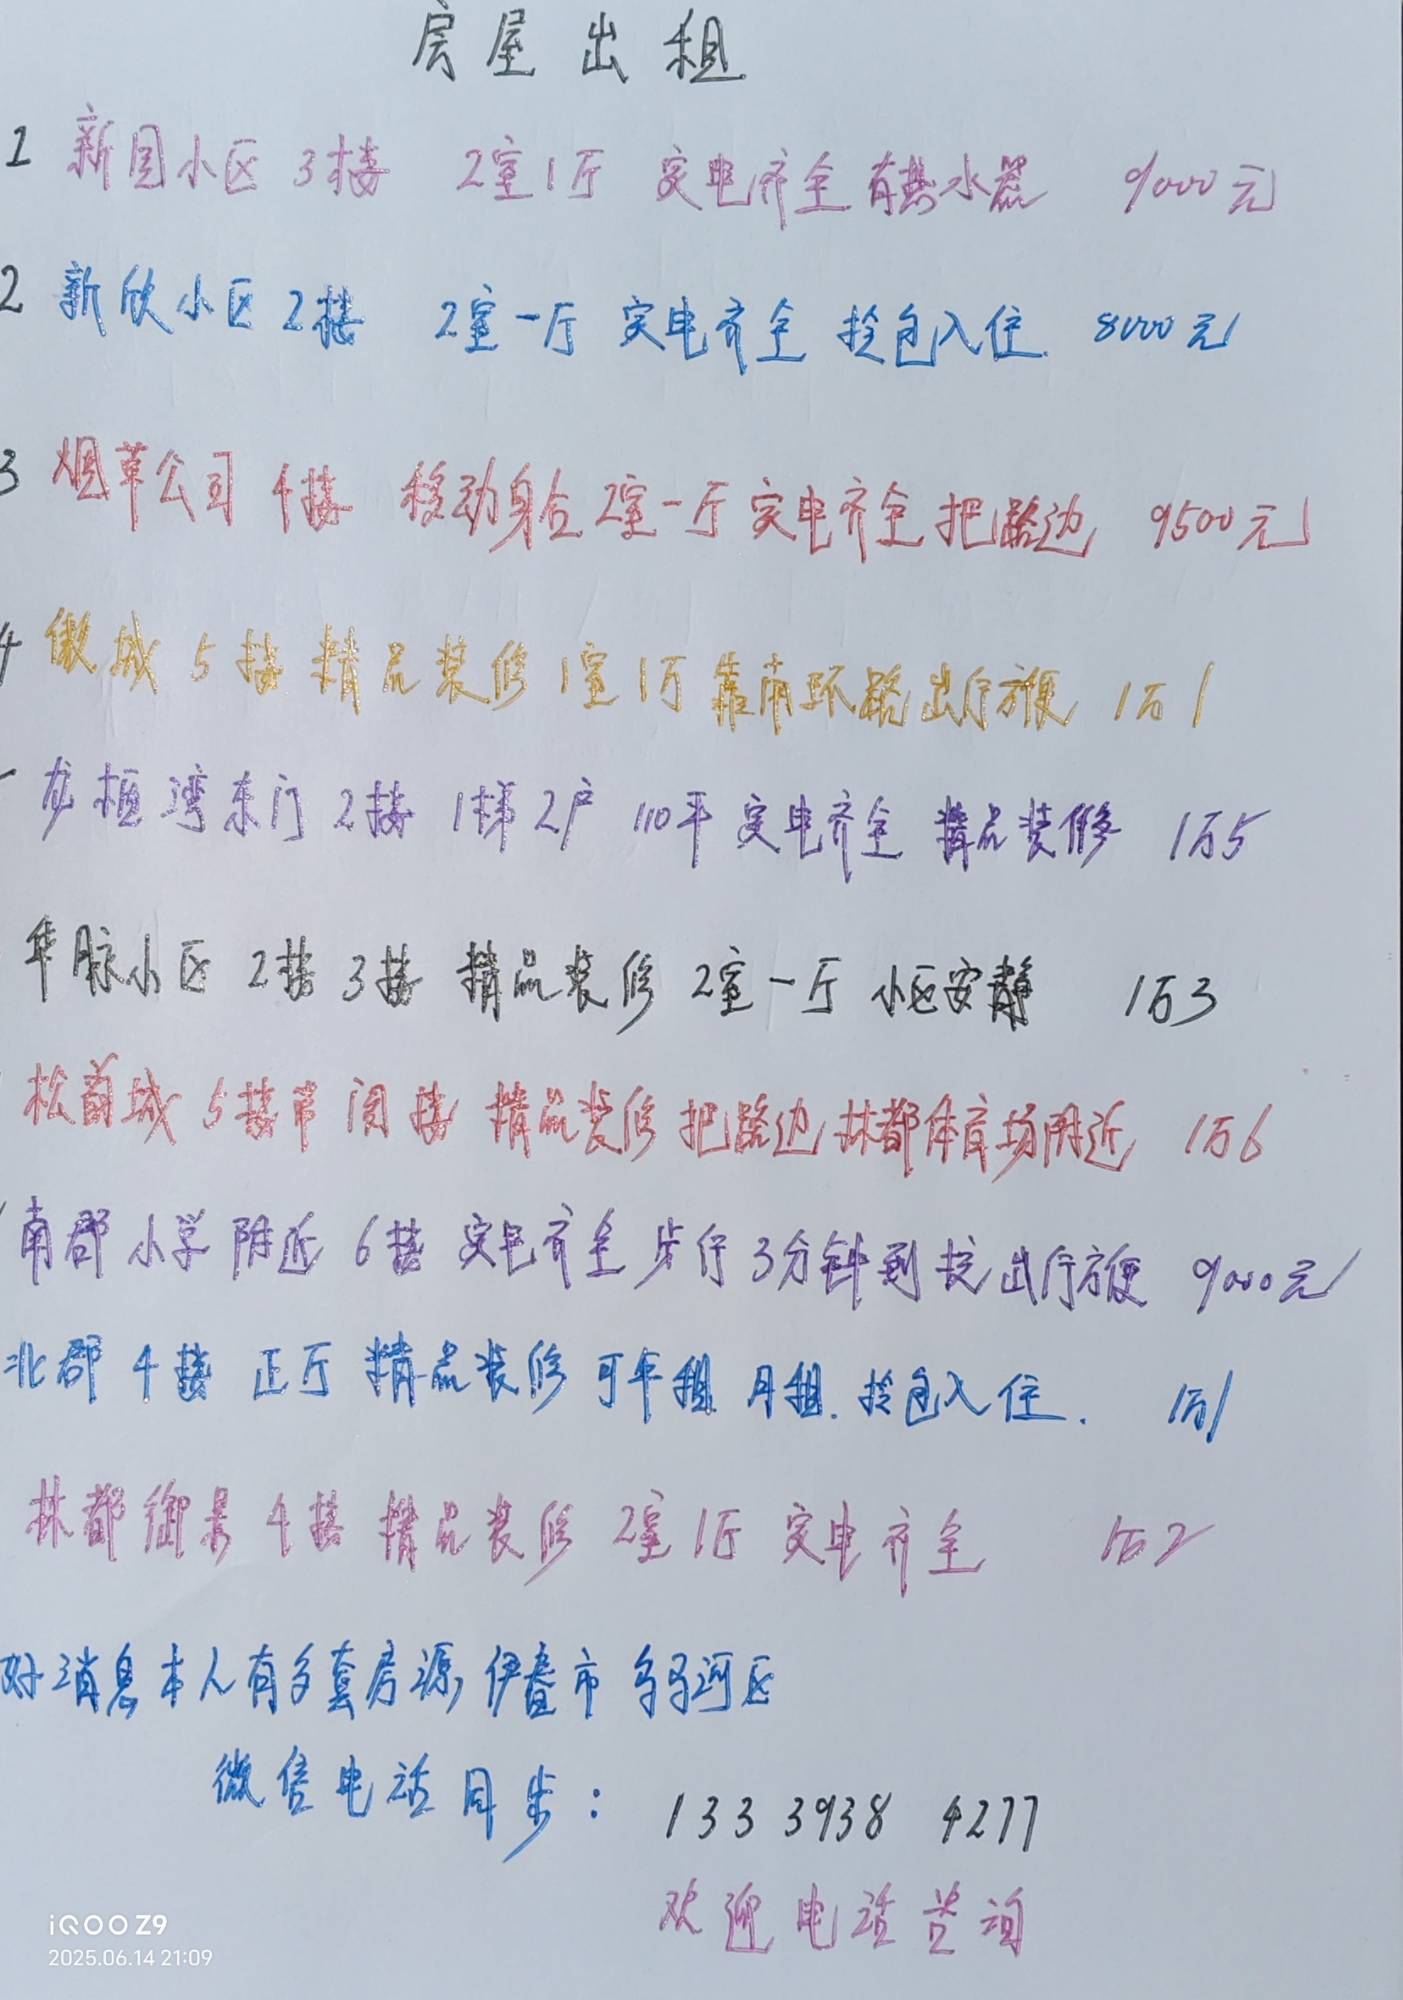 房屋出租
1 新园小区 3楼 2室1厅 家电齐全 有热水器 9000元
2 新欣小区 2楼 2室一厅 家电齐全 拎包入住. 8000元
3 烟草公司 4楼 移动身后 2室一厅 家电齐全 把路边 9500元
4 傲城 5楼 精品装修 1室1厅 靠南环路 出行方便 1万1
龙栖湾东门 2楼 1梯2户 110平 家电齐全 精品装修 1万5
华脉小区 2楼 3楼 精品装修 2室一厅 小区安静 1万3
松韵城 5楼带阁楼 精品装修 把路边 林都体育场附近 1万6
南郡小学附近 6楼 家电齐全 步行3分钟到校 出行方便 9000元
北郡 4楼 正厅 精品装修 可年租 月租. 拎包入住. 1万1
林都御景 4楼 精品装修 2室1厅 家电齐全 1万2
好消息本人有多套房源, 伊春市 乌马河区
微信电话同步: 133 3938 4277
欢迎电话咨询
iQOO Z9
2025.06.14 21:09